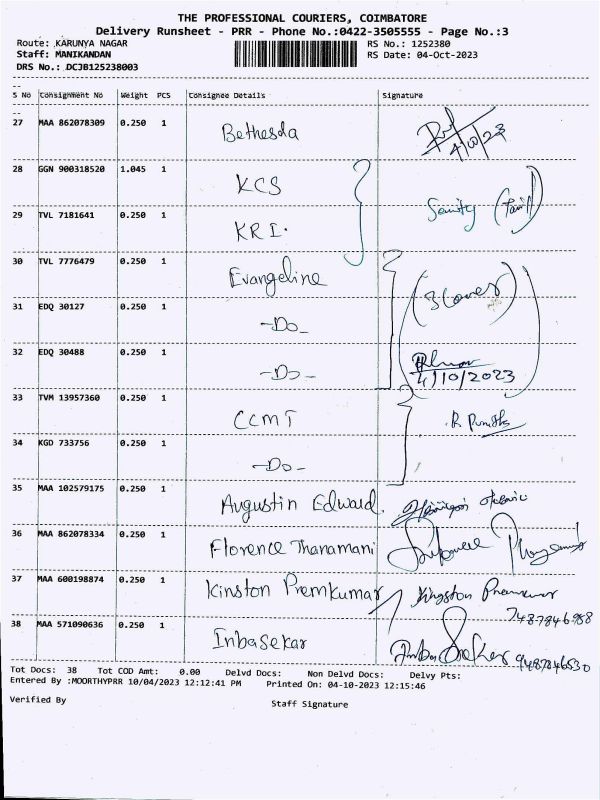 THE PROFESSIONAL COURIERS, COIMBATORE
Delivery Runsheet - PRR - Phone No.:0422-3505555 - Page No.:3
Route: KARUNYA NAGAR RS No.: 1252380
Staff: MANIKANDAN RS Date: 04-Oct-2023
DRS No.: DCJB125238003
S No Consignment No Weight PCS Consignee Details Signature
27 MAA 862078309 0.250 1 Bethesda 4/10/23
28 GGN 900318520 1.045 1 KCS
29 TVL 7181641 0.250 1 KRI.
30 TVL 7776479 0.250 1 Evangeline
31 EDQ 30127 0.250 1 -Do- (3 Covers)
32 EDQ 30488 0.250 1 -Do- 4/10/2023
33 TVM 13957360 0.250 1 CCMT
34 KGD 733756 0.250 1 -Do-
35 MAA 102579175 0.250 1 Augustin Edward.
36 MAA 862078334 0.250 1 Florence Thanamani
37 MAA 600198874 0.250 1 Kinston Premkumar Kingston Premkumar
7487846988
38 MAA 571090636 0.250 1 Inbasekar 9487846530
Tot Docs: 38 Tot COD Amt: 0.00 Delvd Docs: Non Delvd Docs: Delvy Pts:
Entered By :MOORTHYPRR 10/04/2023 12:12:41 PM Printed On: 04-10-2023 12:15:46
Verified By Staff Signature